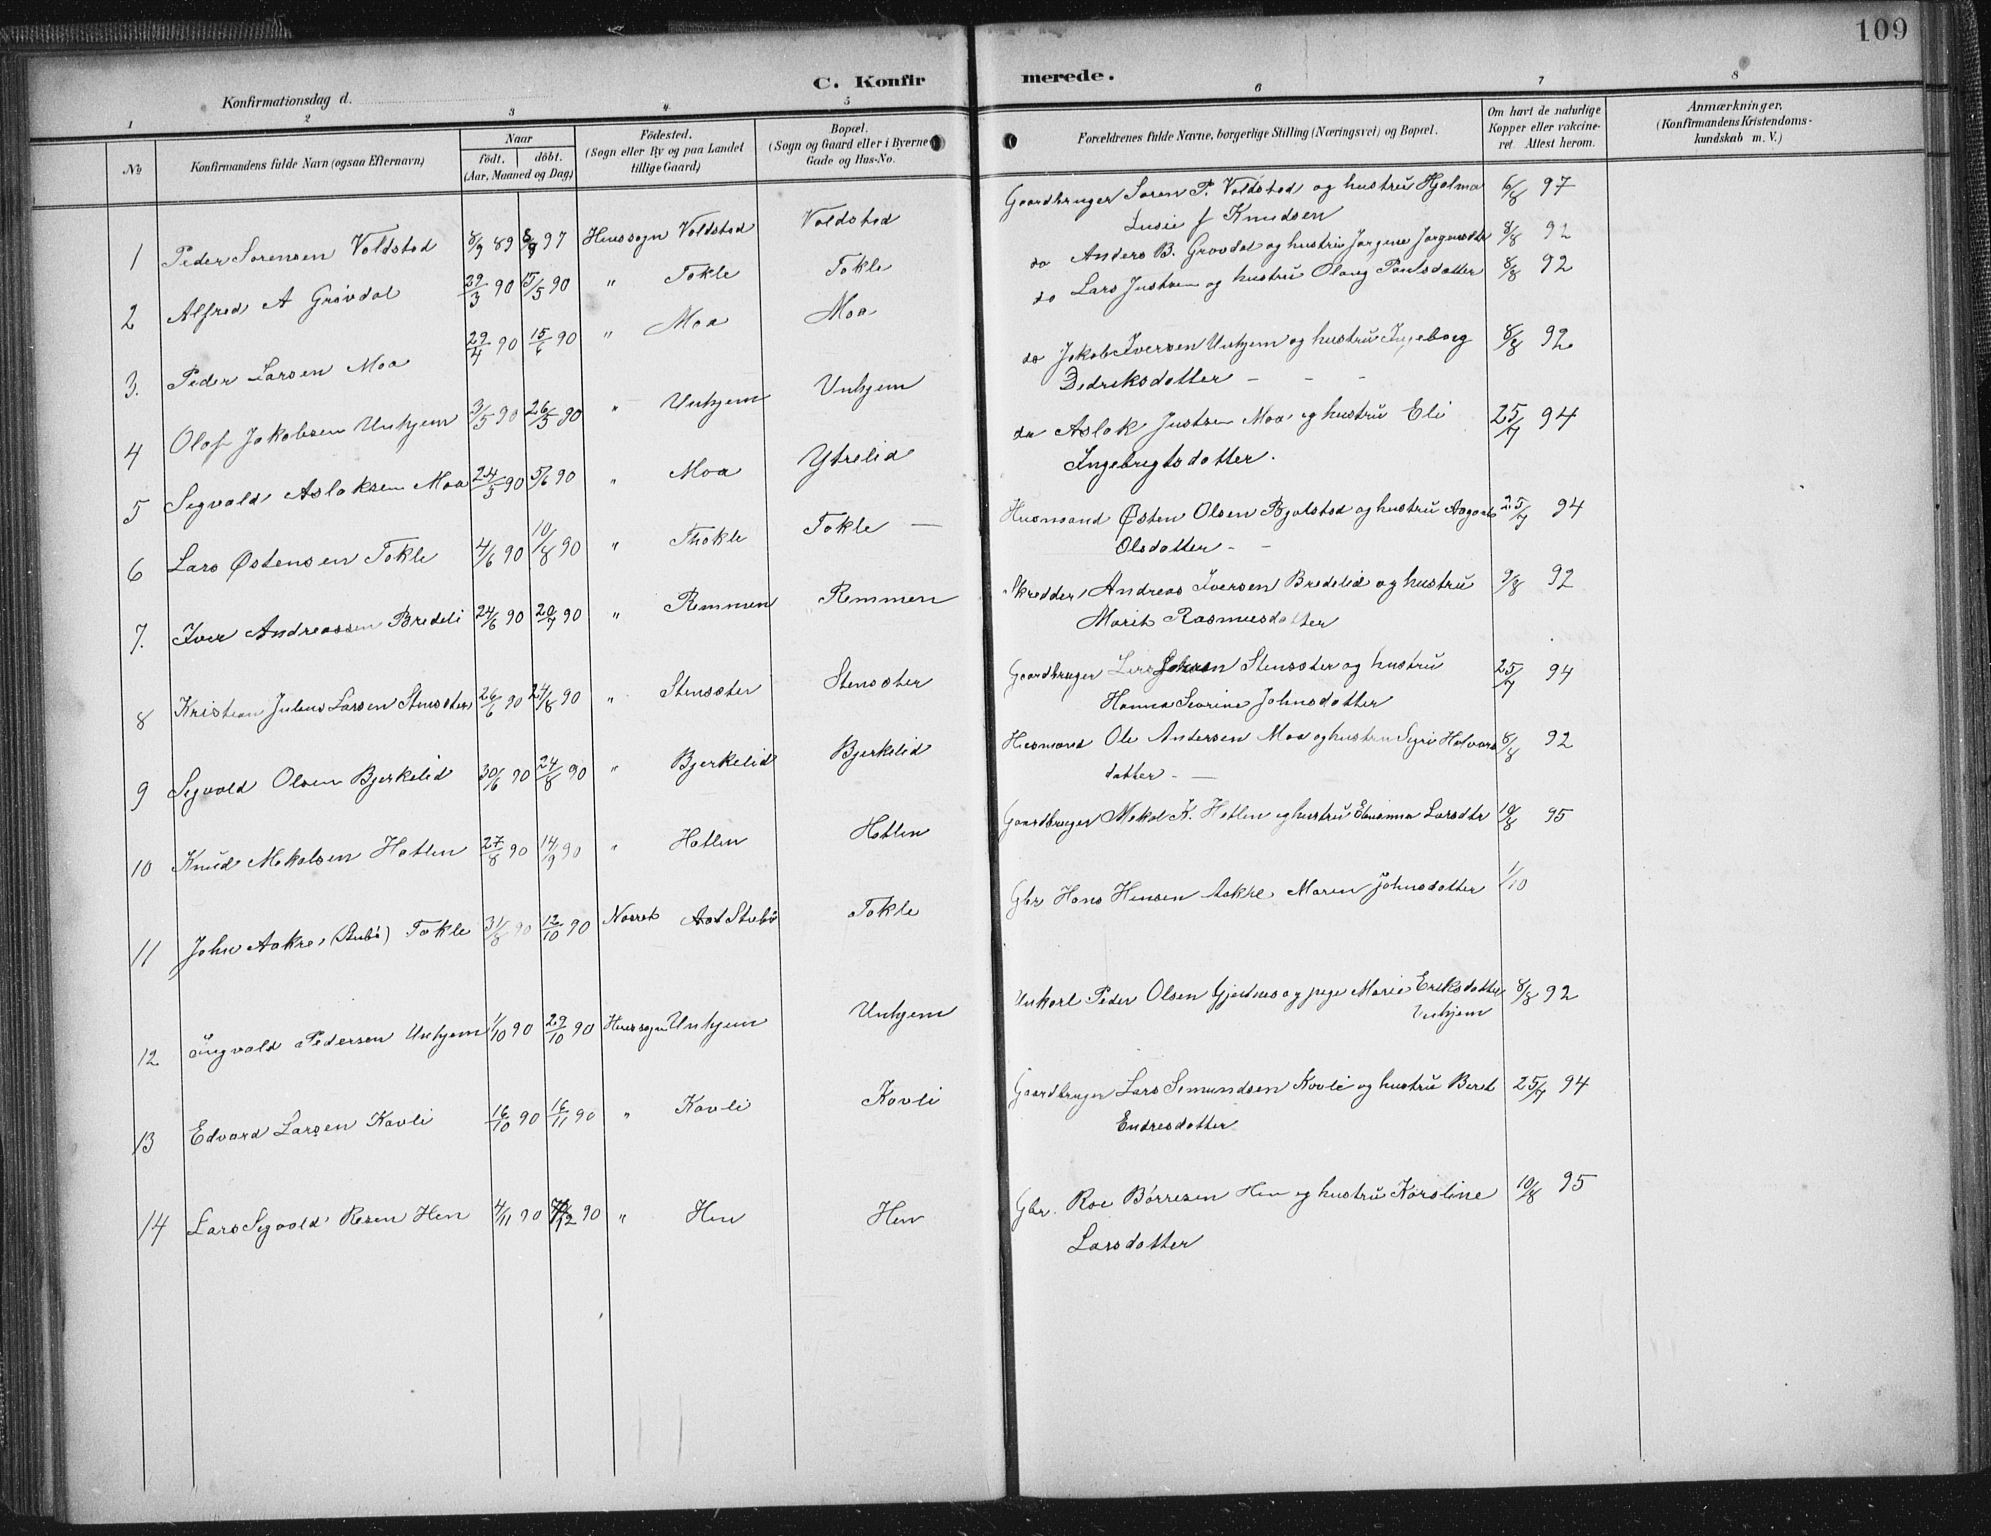 109
C. Konfir merede.
Konfirmationsdag d.
1 2 3 4 5 6 7 8
No
Konfirmandens fulde Navn (ogsaa Efternavn)
Naar
født. døbt.
(Aar, Maaned og Dag)
Fødested.
(Sogn eller By og paa Landet
tillige Gaard)
Bopæl.
(Sogn og Gaard eller i Byerne
Gade og Hus-No.
Forældrenes fulde Navne, borgerlige Stilling (Næringsvei) og Bopæl.
Om havt de naturlige
Kopper eller vakcine-
ret. Attest herom.
Anmærkninger.
(Konfirmandens Kristendoms-
kundskab m. V.)
1 Peder Sorensen Voldstad 8/9 89 8/9 97 Hens sogn Voldstad Voldstad Gaardbruger Soren P. Voldstad og hustru Hjalma 6/8 97
Lusie f Knudsen
2 Alfred A Grøvdal 29/3 90 15/5 90 " Tokle Tokle do Anders B. Grovdal og hustru Jorgine Jorgensdtr 8/8 92
3. Peder Larsen Moa 29/4 90 15/6 90 " Moa Moa do Lars Justsen og hustru Olaug Paulsdatter 8/8 92
4 Olaf Jakobsen Unhjem 3/5 90 26/5 90 " Unhjem Unhjem do Jakob Iversen Unhjem og hustru Ingeborg 8/8 92
Didriksdatter - - -
5 Sigvald Aslaksen Moa 24/5 90 5/6 90 " Moa Ytrelid do Aslak Justsen Moa og hustru Eli 25/7 94
Ingebrigtsdatter.
6 Lars Østensen Tokle 4/6 90 10/8 90 " Thokle Tokle — Husmand Østen Olsen Bjolstad og hustru 25/7 94
Olsdatter - -
7. Iver Andreassen Bredeli 24/6 90 20/7 90 " Remmen Remmen Skredder Andreas Iversen Bredelid og hustru 9/8 92
Marit Rasmusdatter
8 Kristian Julius Larsen Stensøter 26/6 90 24/8 90 " Stensøter Stensøter Gaardbruger Stensøter og hustru 25/7 94
Hanna Severine Johnsdatter
9 Sigvald Olsen Bjerkelid 30/6 90 24/8 90 " Bjerkelid Bjerkelid Husmand Ole Andersen Moa og hustru Sigri Halvards 8/8 92
datter - —
10 Knud Mekalsen Hatlen 27/8 90 14/9 90 " Hatlen Hatlen Gaardbruger Mekal K. Hatlen og hustru Larsdtr 19/8 95
11 John Aakre (Stubø) Tokle 31/8 90 12/10 90 Norret Stubø Tokle Gbr Hans Hansen Aakre Maren Johnsdatter 1/10
12 Ingvald Pedersen Unhjem 1/10 90 29/10 90 Hens sogn Unhjem Unhjem Unkarl Peder Olsen Gjertnes og pige Marie Eriksdatter 8/8 92
Unhjem
13 Edvard Larsen Kavli 16/10 90 16/11 90 " Kavli Kavli Gaardbruger Lars Simundsen Kavli og hustru Beret 25/7 94
Endresdatter
14 Lars Sigvald Roesen Hen 4/11 90 /12 90 " Hen Hen Gbr. Roe Børresen Hen og hustru Karoline 10/8 95
Larsdatter